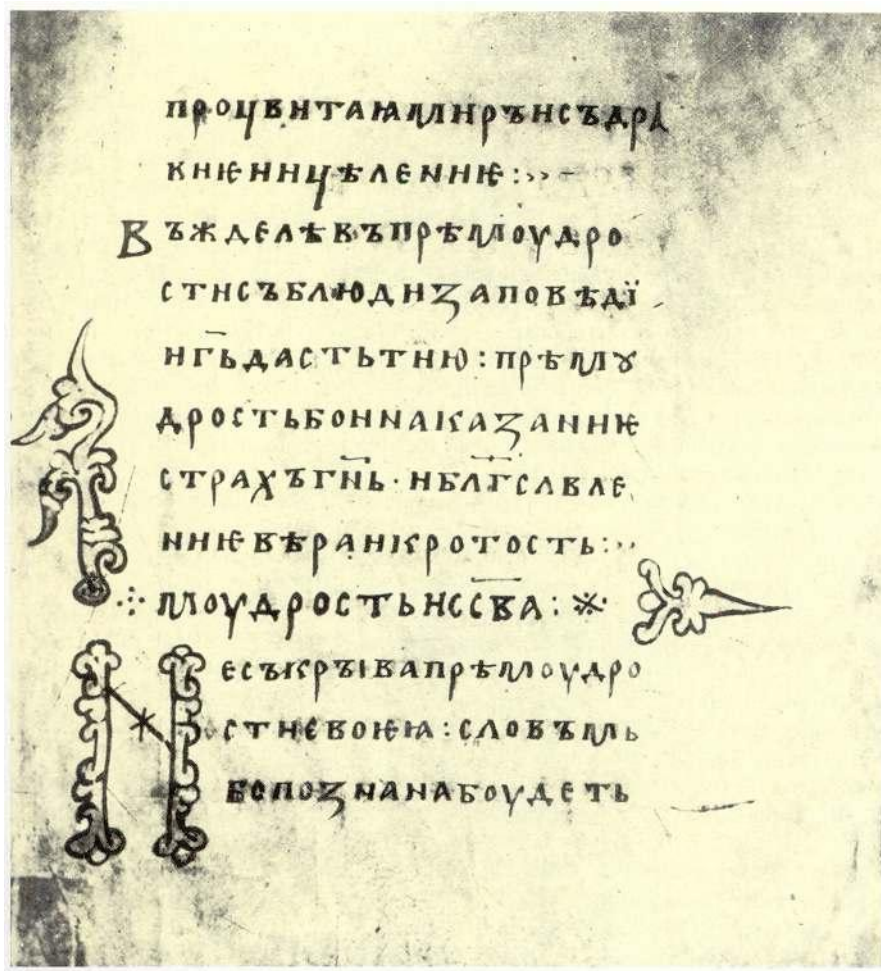 процвитаѩмиръисъдра
виѥиицѣлениѥ:··–
Въжделѣвъпрѣмоудро
стисъблюдизаповѣдї
иг҃ьдастьтию:прѣмꙋ
дростьбоинаказаниѥ
страхъгн҃ь·ибл҃гсвле
ниѥвѣраикротость:··
⁘моудростьисс҃ва:※
Несъкрꙑвапрѣмоудро
стисвоѥꙗ:словъмь
бопознанабоудеть